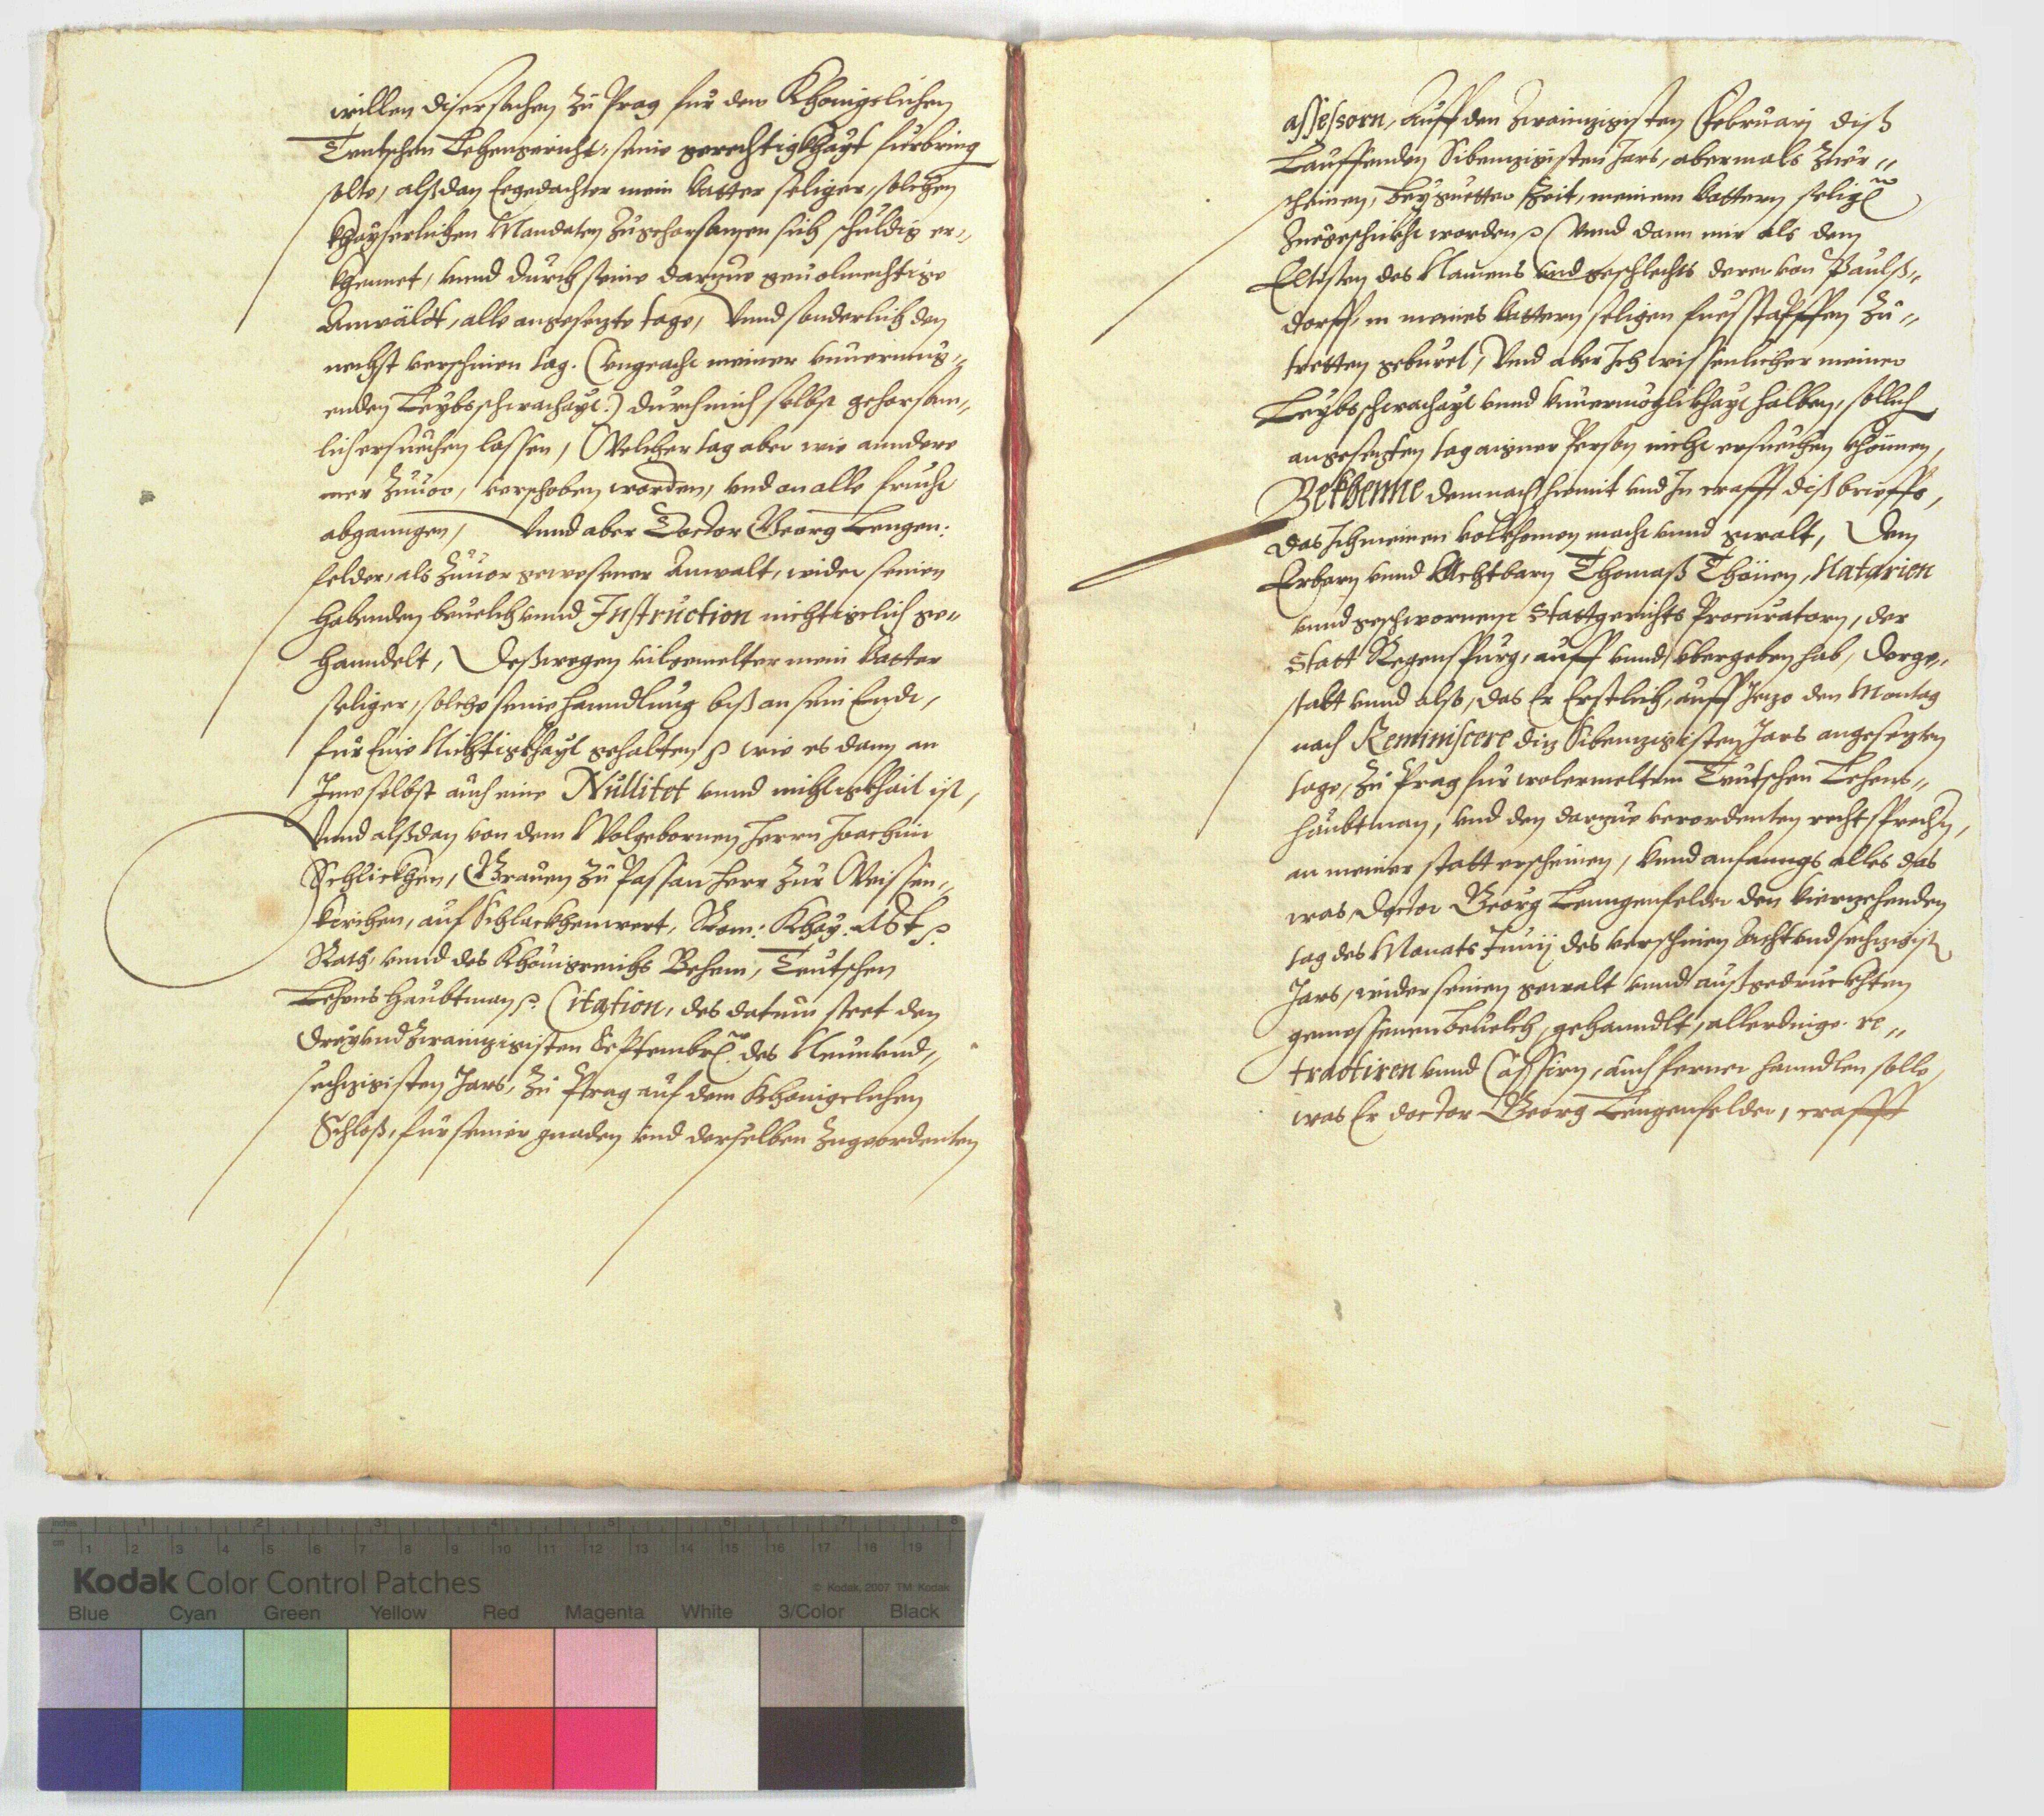 willen diser sachen zu Prag für dem Khönigelichen
Teutschen Lehengericht, seine gerechtigkhayt fürbring
solte, alßdan Ergedachter mein Vatter seliger, solchen
Khayserlichen Mandaten zugehorsamen sich schuldig er-
khennet, unnd durch seine darzue gevolmechtigte
Anwäldt, alle angesezte tage, Unnd sonderlich den
nechst verschinen tag. (ungeacht meiner unvermug-
enden Leybsschwachayt.) durch mich selbst gehorsam-
lich ersuechen lassen, Welcher tag aber wie anndere
mer zuvor, verschoben worden, und on alle frucht
abganngen, Unnd aber Doctor Georg Lengen:
felder, als zuvor gewesener Anwalt, wider seinen
habenden bevelch unnd Instruction nichtigelich ge-
hanndelt, Deßwegen vilgemelter mein Vatter
seliger, solche seine hanndlung biß an sein Ende,
für Eine Nichtigkhayt gehalten wie es dann an
Jme selbst auch eine Nullitet unnd nichtigkhait ist,
Unnd alßdan von dem Wolgebornen Herrn Joachim
Schlickhen, Graven zu Passan Herr zur Weissen-
kirchen, auf Schlackhenwert, Rom: Khay: Mt
Rath, unnd des Khönigreichs Behem, Teutschen
Lehens Haubtman. Citation, des datum steet den
dreyundzwainzigisten Septembr. des Neunund-
sechzigisten Jars, zu Prag auf dem Khönigelichen
Schloß, für seiner gnaden und derselben zugeordenten
assessorn, auff den zwainzigisten Februarj diß
Lauffenden Sibenzigisten Jars, abermals zuer-
scheinen, bey guetter Zeit, meinem Vattern selig
zuegeschickht worden (Unnd dann mir als dem
Eltisten des Namens und geschlechts derer von Paulß-
dorff, in meines Vattern seligen fuesstapffen zu-
tretten geburet, Unnd aber Jch wissenlicher meiner
Leybsschwachayt unnd Unvermöglikhayt halben, sollich
angesezten tag aigner Person nicht ersuechen khönnen,
Bekhenne demnach hiemit und Jn crafft diß brieffs,
das Jch meinen volkhomen macht unnd gwalt, Dem
Erbarn unnd Achtbarn Thomaß Thänen, Notarien
unnd geschwornem Stattgerichts Procuratorn, der
Statt Regenspurg, auff unnd übergeben hab, derge-
stalt unnd also, das Er Erstlich, auff Jezo den Montag
nach Reminiscere diz Sibenzigisten Jars angesezten
tage, zu Prag für wolermeltem Teutschen Lehens-
haubtman, und den darzue verordenten rechtsprechern,
an meiner statt erscheinen, Unnd anfanngs alles das
was Doctor Georg Lenngenfelder den vierzehenden
tag des Monats Junij des verschinen Achtundsechzigist
Jars, wider seinen gewalt unnd außgedruckhten
gemessenen bevelch, gehanndlt, allerdinge re-
tractiren unnd Cassirn, auch ferner hanndlen solle
was Er doctor Georg Lengenfelder, crafft